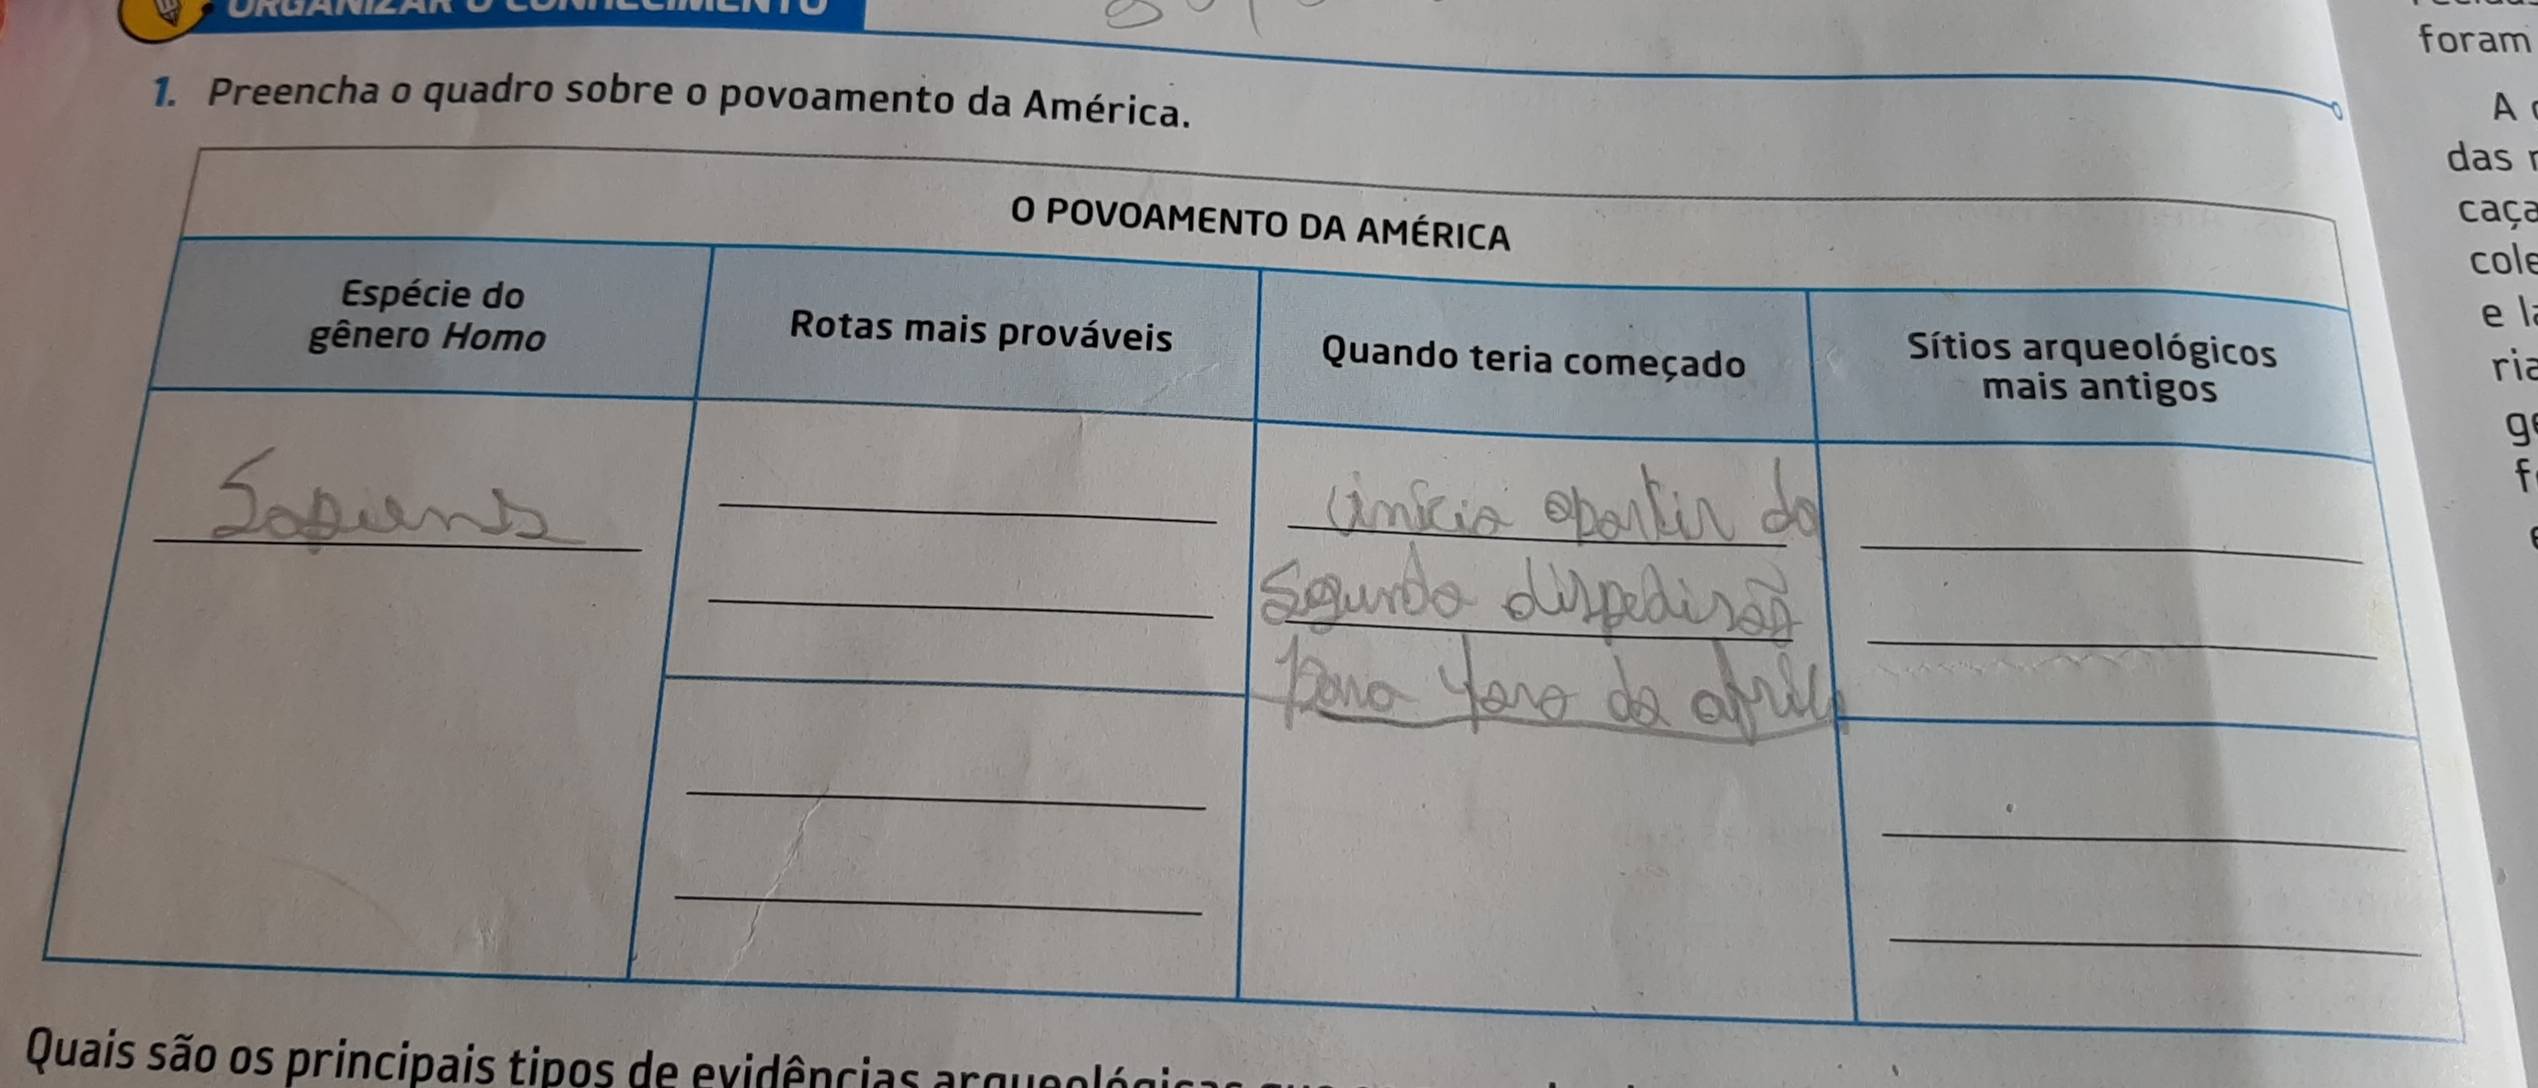 ORGANIZAR O CONHECIMENTO
foram
1. Preencha o quadro sobre o povoamento da América.
A
das
caça
O POVOAMENTO DA AMÉRICA
Espécie do
gênero Homo
Rotas mais prováveis
Quando teria começado
Sítios arqueológicos
mais antigos
e
Sapiens
início apartir da
Segunda dispedisão
para fora da africa
Quais são os principais tipos de evidências